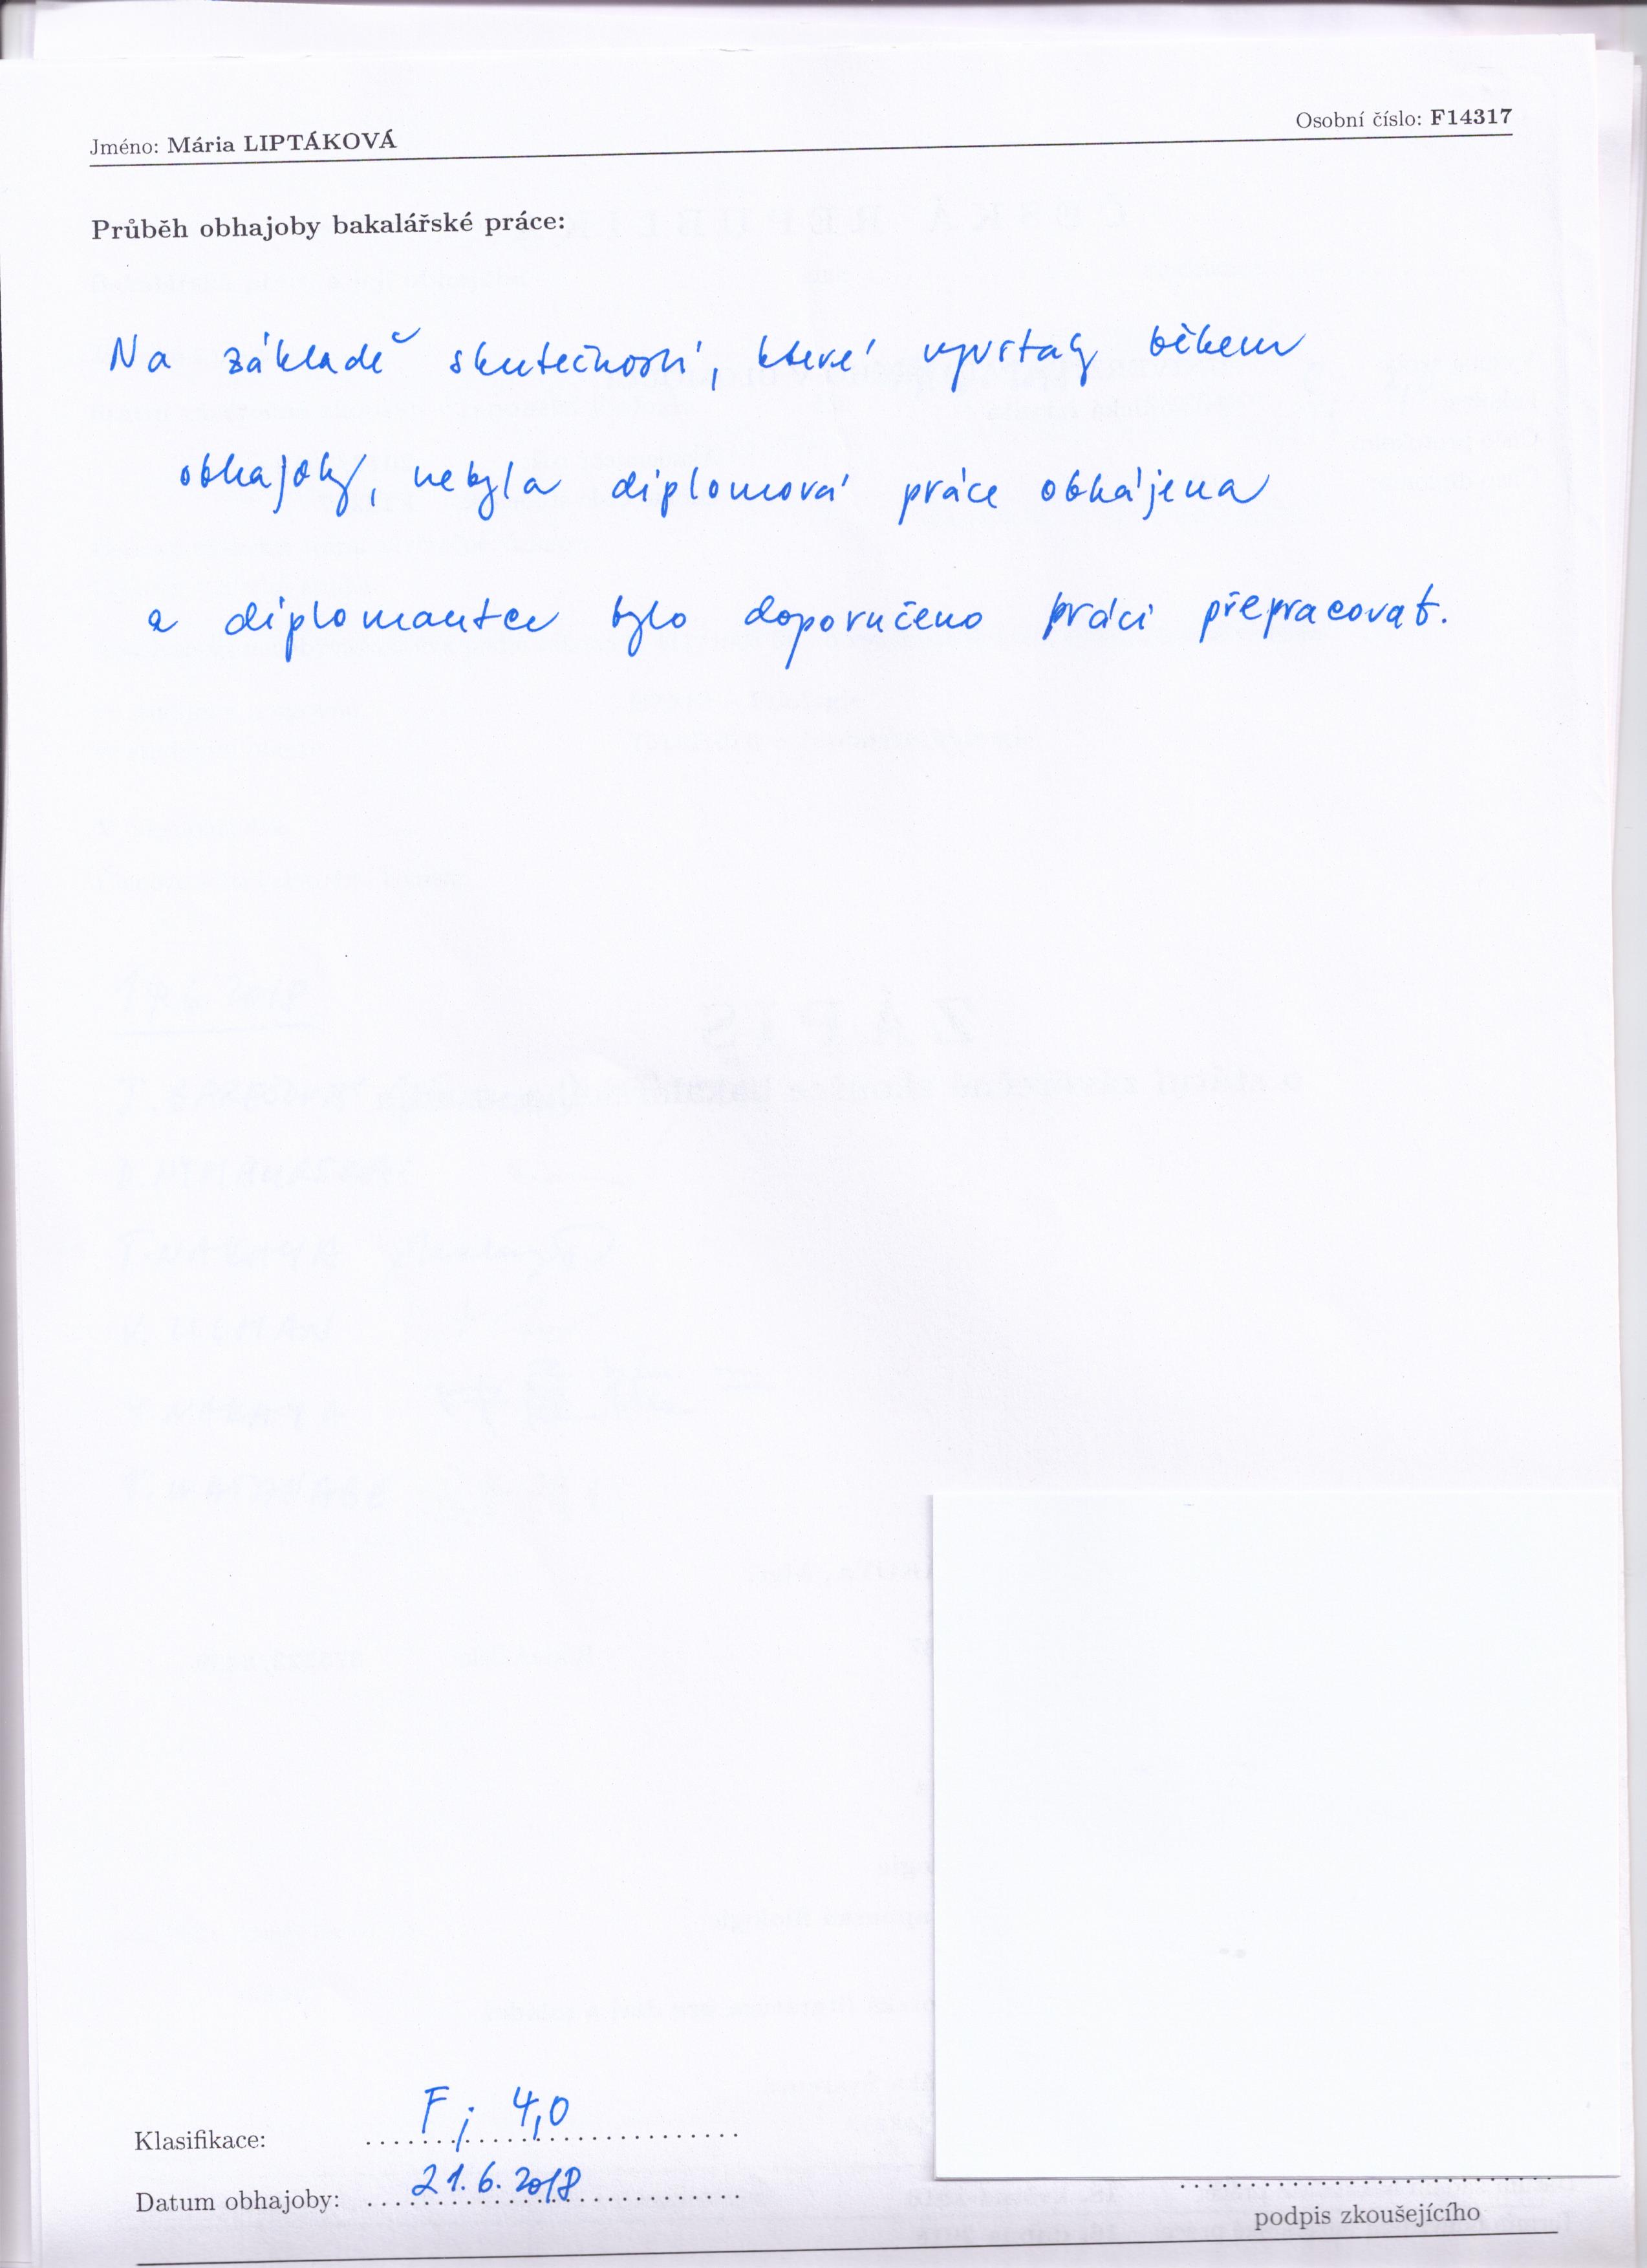 Jméno: Mária LIPTÁKOVÁ Osobní číslo: F14317
Průběh obhajoby bakalářské práce:
Na základě skutečností, které vyvstaly během
obhajoby, nebyla diplomová práce obhájena
a diplomantce bylo doporučeno práci přepracovat.
Klasifikace: F; 4,0
Datum obhajoby: 21.6.2018
podpis zkoušejícího